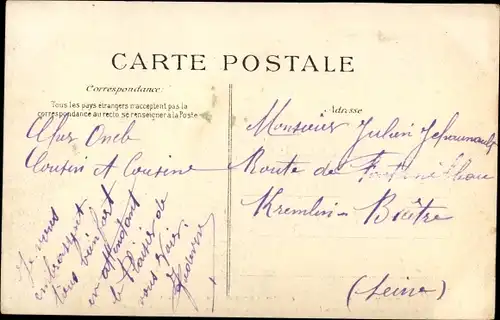 CARTE POSTALE
Correspondance:
Tous les pays étrangers n'acceptent pas la
correspondance au recto se renseigner à la Poste
Oncle
Cousin et Cousine
Je vous
embrasse
tous bien fort
en attendant
le Plaisir de
vous Voir
Adresse
Monsieur Julien
Route de Fontainebleau
Kremlin-Bicêtre
(Seine)